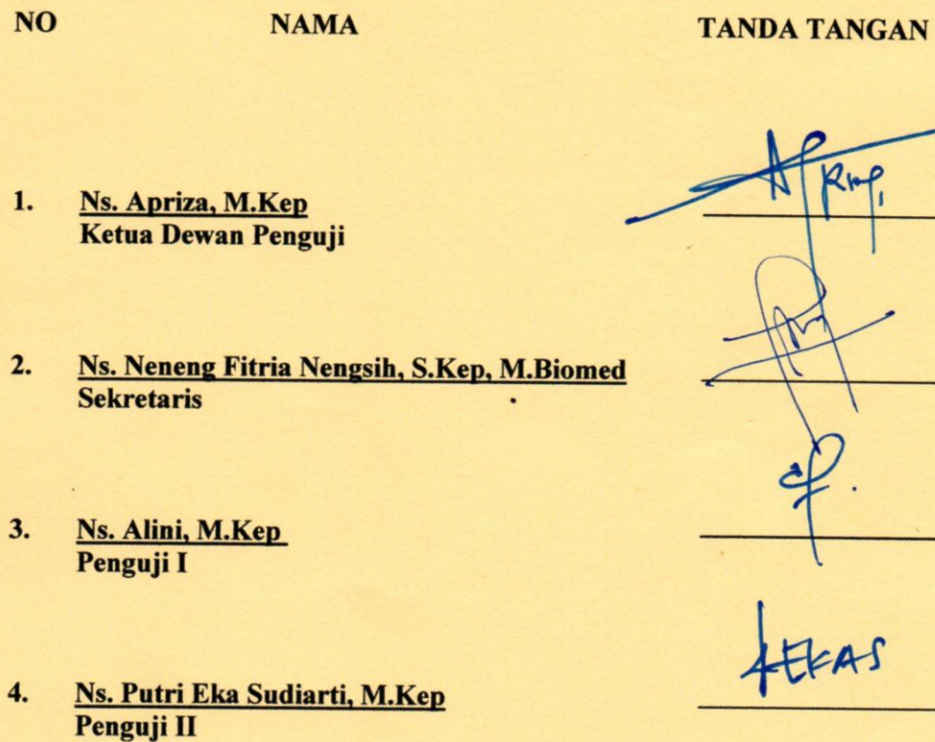 NO NAMA TANDA TANGAN
1. Ns. Apriza, M.Kep
Ketua Dewan Penguji
2. Ns. Neneng Fitria Nengsih, S.Kep, M.Biomed
Sekretaris
3. Ns. Alini, M.Kep
Penguji I
4. Ns. Putri Eka Sudiarti, M.Kep
Penguji II